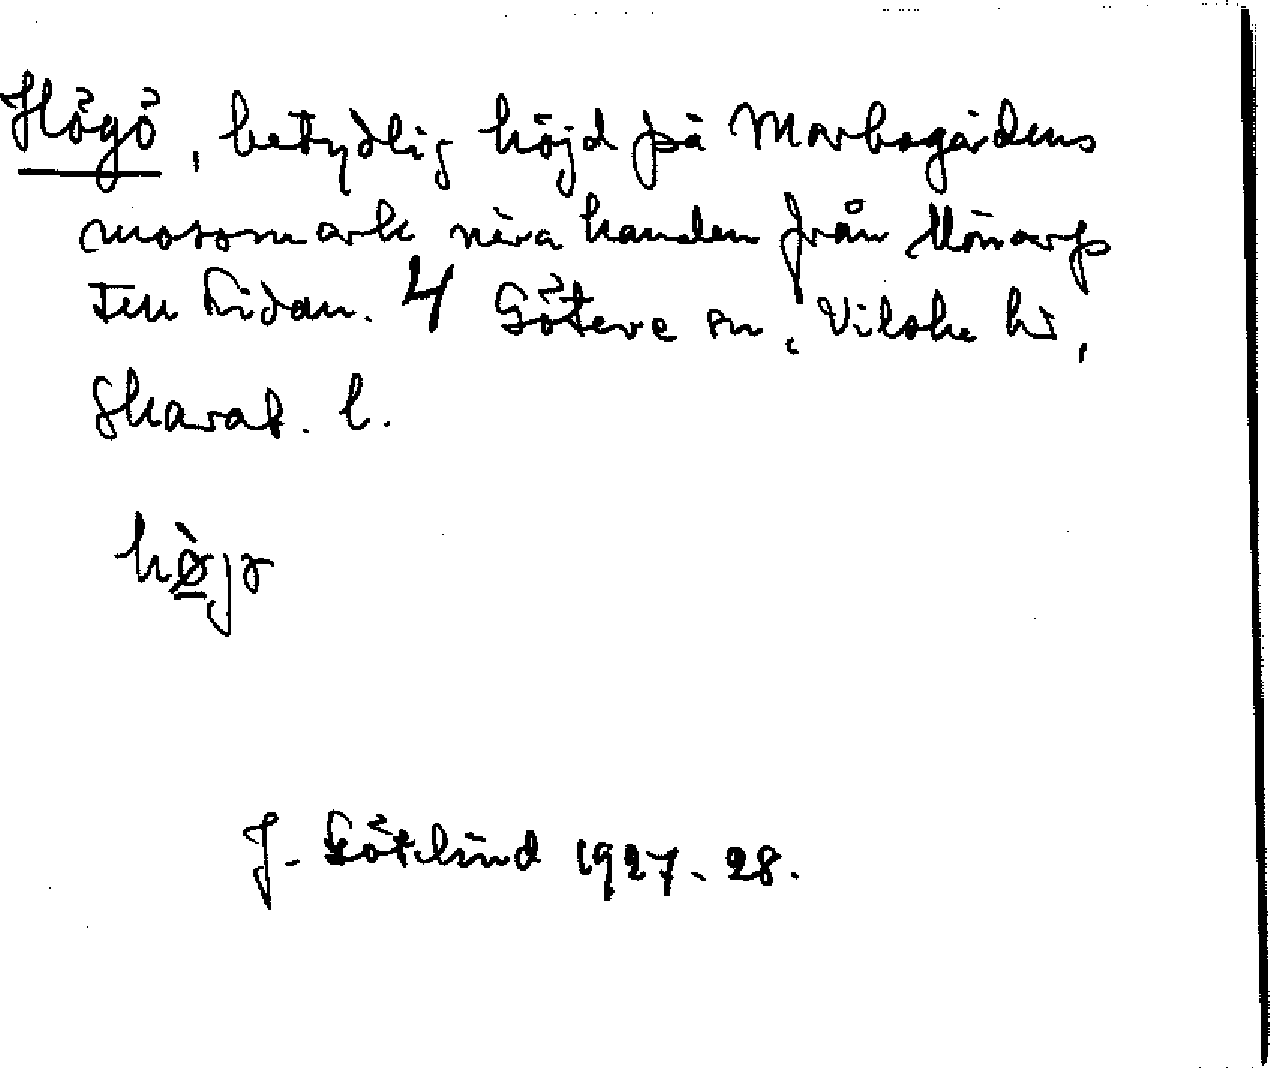 Högö, betydlig höjd på Morbogårdens
mossmark nära kanden från Mönarp
ten Lidan. 4 Göteve sn, Vilske hd,
Skarab. l.
hø̀jɤ
J. Götlind 1927-28.